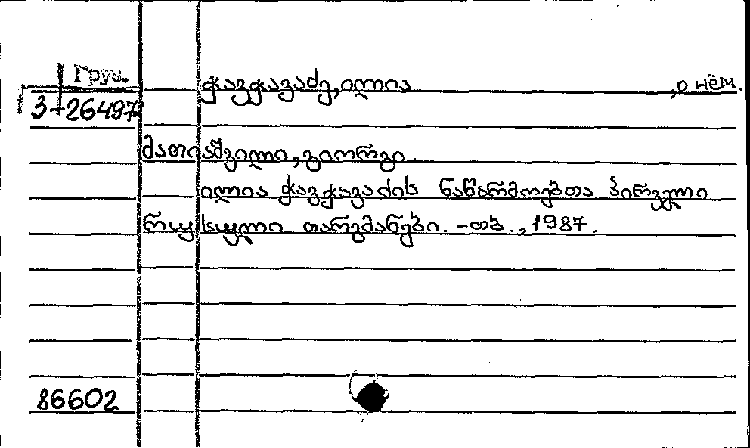 Груз.
ჭავჭავაძე, ილია , о нём.
3-26497
მათიაშვილი, გიორგი.
ილია ჭავჭავაძის ნაწარმოებთა პირველი
რუსული თარგმანები. - თბ., 1987.
86602